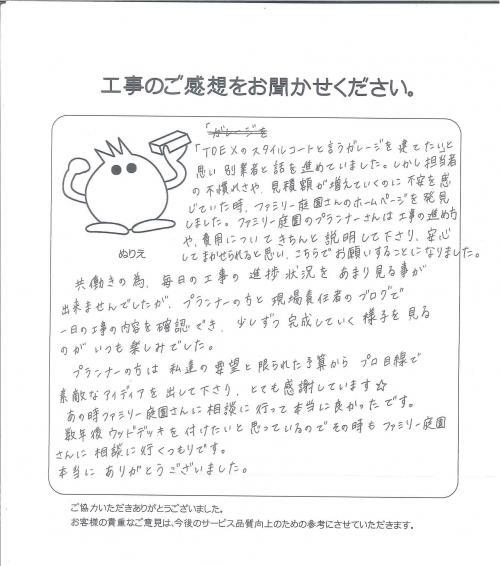 工事のご感想をお聞かせください。
「ガレージを
「TOEXのスタイルコートと言うガレージを建てたいと
思い別業者と話を進めていました。しかし担当者
の不慣れさや、見積額が増えていくのに不安を感
じていた時、ファミリー庭園さんのホームページを発見
しました。ファミリー庭園のプランナーさんは工事の進め方
や、費用についてきちんと説明して下さり、安心
してまかせられると思い、こちらでお願いすることになりました。
ぬりえ
共働きの為、毎日の工事の進捗状況をあまり見る事が
出来ませんでしたが、プランナーの方と現場責任者のブログで
一日の工事の内容を確認でき、少しずつ完成していく様子を見る
のがいつも楽しみでした。
プランナーの方は私達の要望と限られた予算からプロ目線で
素敵なアイディアを出して下さり、とても感謝しています☆
あの時ファミリー庭園さんに相談に行って本当に良かったです。
数年後ウッドデッキを付けたいと思っているのでその時もファミリー庭園
さんに相談に行くつもりです。
本当にありがとうございました。
ご協力いただきありがとうございました。
お客様の貴重なご意見は、今後のサービス品質向上のための参考にさせていただきます。